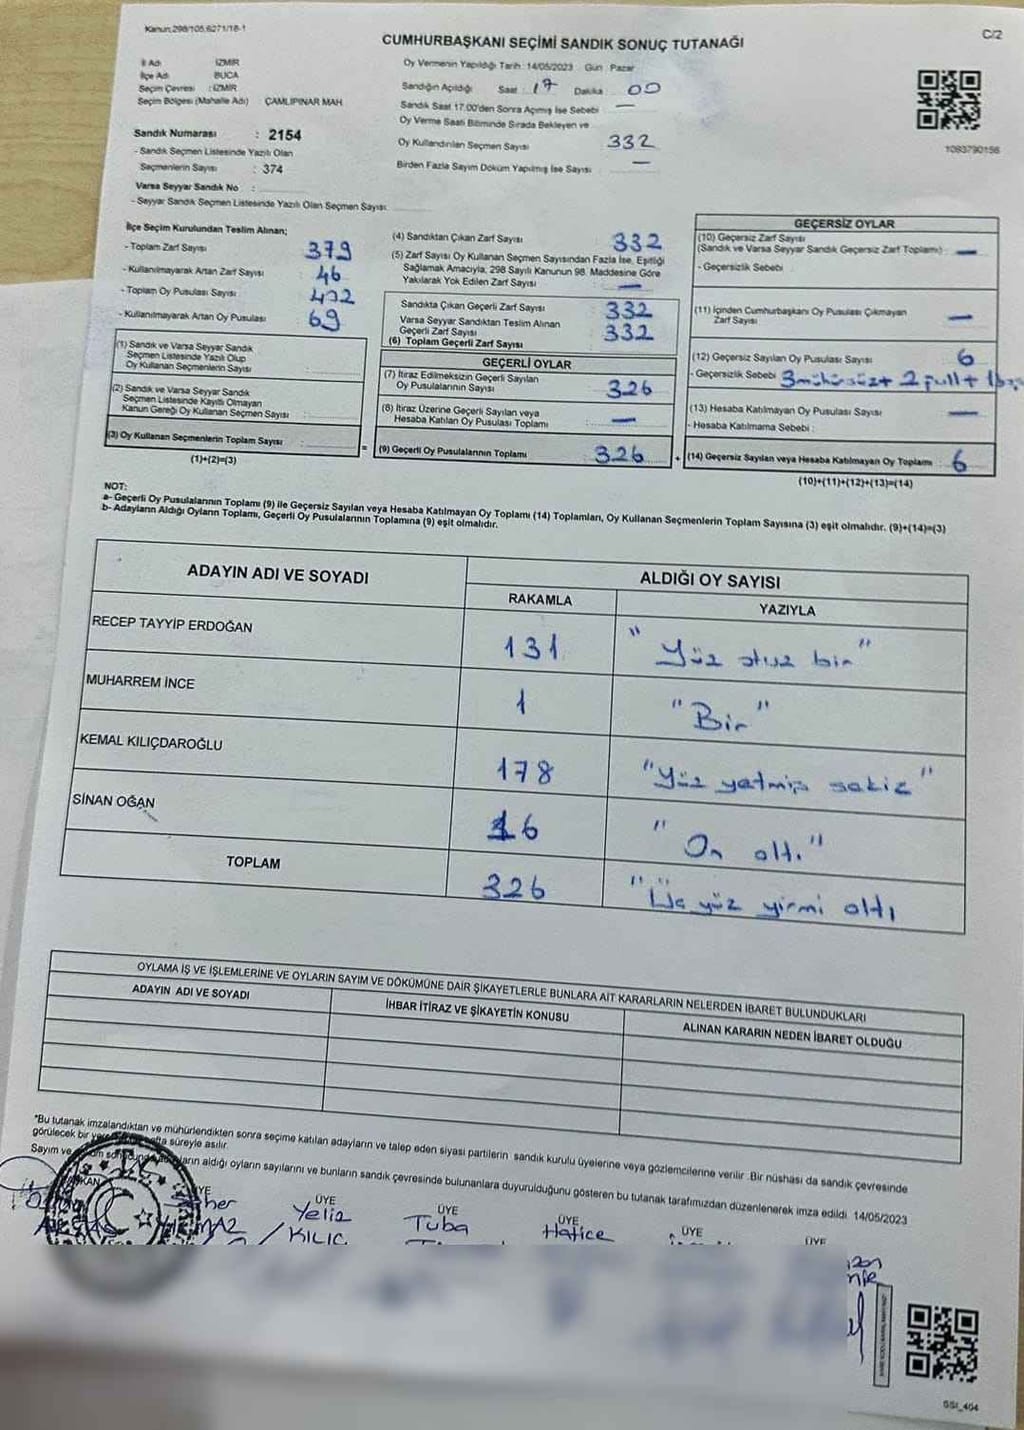 Kanun:298/105,6271/18-1
C/2
CUMHURBAŞKANI SEÇİMİ SANDIK SONUÇ TUTANAĞI
İl Adı İZMİR
İlçe Adı BUCA
Seçim Çevresi : İZMİR
Seçim Bölgesi (Mahalle Adı) ÇAMLIPINAR MAH.
Sandık Numarası : 2154
- Sandık Seçmen Listesinde Yazılı Olan
Seçmenlerin Sayısı : 374
Varsa Seyyar Sandık No :
- Seyyar Sandık Seçmen Listesinde Yazılı Olan Seçmen Sayısı:
Oy Vermenin Yapıldığı Tarih: 14/05/2023 Gün: Pazar
Sandığın Açıldığı Saat : 17 Dakika 00
Sandık Saat 17.00'den Sonra Açımış İse Sebebi —
Oy Verme Saati Bitiminde Sırada Bekleyen ve
Oy Kullandırılan Seçmen Sayısı 332
Birden Fazla Sayım Döküm Yapılmış İse Sayısı —
1083790156
İlçe Seçim Kurulundan Teslim Alınan;
- Toplam Zarf Sayısı 379
- Kullanılmayarak Artan Zarf Sayısı 46
- Toplam Oy Pusulası Sayısı
- Kullanılmayarak Artan Oy Pusulası 69
(1) Sandık ve Varsa Seyyar Sandık
Seçmen Listesinde Yazılı Olup
Oy Kullanan Seçmenlerin Sayısı
(2) Sandık ve Varsa Seyyar Sandık
Seçmen Listesinde Kayıtlı Olmayan
Kanun Gereği Oy Kullanan Seçmen Sayısı :
(3) Oy Kullanan Seçmenlerin Toplam Sayısı : =
(1)+(2)=(3)
(4) Sandıktan Çıkan Zarf Sayısı 332
(5) Zarf Sayısı Oy Kullanan Seçmen Sayısından Fazla İse, Eşitliği
Sağlamak Amacıyla; 298 Sayılı Kanunun 98. Maddesine Göre
Yakılarak Yok Edilen Zarf Sayısı : —
Sandıkta Çıkan Geçerli Zarf Sayısı 332
Varsa Seyyar Sandıktan Teslim Alınan
Geçerli Zarf Sayısı 332
(6) Toplam Geçerli Zarf Sayısı
GEÇERLİ OYLAR
(7) İtiraz Edilmeksizin Geçerli Sayılan
Oy Pusulalarının Sayısı 326
(8) İtiraz Üzerine Geçerli Sayılan veya
Hesaba Katılan Oy Pusulası Toplamı —
(9) Geçerli Oy Pusulalarının Toplamı 326 +
GEÇERSİZ OYLAR
(10) Geçersiz Zarf Sayısı
(Sandık ve Varsa Seyyar Sandık Geçersiz Zarf Toplamı) : —
- Geçersizlik Sebebi :
(11) İçinden Cumhurbaşkanı Oy Pusulası Çıkmayan
Zarf Sayısı —
(12) Geçersiz Sayılan Oy Pusulası Sayısı 6
- Geçersizlik Sebebi 3 mühürsüz + 2
(13) Hesaba Katılmayan Oy Pusulası Sayısı —
- Hesaba Katılmama Sebebi :
(14) Geçersiz Sayılan veya Hesaba Katılmayan Oy Toplamı : 6
(10)+(11)+(12)+(13)=(14)
NOT:
a- Geçerli Oy Pusulalarının Toplamı (9) ile Geçersiz Sayılan veya Hesaba Katılmayan Oy Toplamı (14) Toplamları, Oy Kullanan Seçmenlerin Toplam Sayısına (3) eşit olmalıdır. (9)+(14)=(3)
b- Adayların Aldığı Oyların Toplamı, Geçerli Oy Pusulalarının Toplamına (9) eşit olmalıdır.
ADAYIN ADI VE SOYADI
ALDIĞI OY SAYISI
RAKAMLA YAZIYLA
RECEP TAYYİP ERDOĞAN 131 "Yüz otuz bir"
MUHARREM İNCE 1 "Bir"
KEMAL KILIÇDAROĞLU 178 "Yüz yetmiş sekiz"
SİNAN OĞAN 16 "On altı"
TOPLAM 326 "Üç yüz yirmi altı
OYLAMA İŞ VE İŞLEMLERİNE VE OYLARIN SAYIM VE DÖKÜMÜNE DAİR ŞİKAYETLERLE BUNLARA AİT KARARLARIN NELERDEN İBARET BULUNDUKLARI
ADAYIN ADI VE SOYADI
İHBAR İTİRAZ VE ŞİKAYETİN KONUSU
ALINAN KARARIN NEDEN İBARET OLDUĞU
*Bu tutanak imzalandıktan ve mühürlendikten sonra seçime katılan adayların ve talep eden siyasi partilerin sandık kurulu üyelerine veya gözlemcilerine verilir. Bir nüshası da sandık çevresinde
görülecek bir süreyle asılır.
Sayım ve aldığı oyların sayılarını ve bunların sandık çevresinde bulunanlara duyurulduğunu gösteren bu tutanak tarafımızdan düzenlenerek imza edildi. 14/05/2023
ÜYE ÜYE ÜYE ÜYE ÜYE
Yeliz Tuba Hatice
KILIÇ
GSI_404